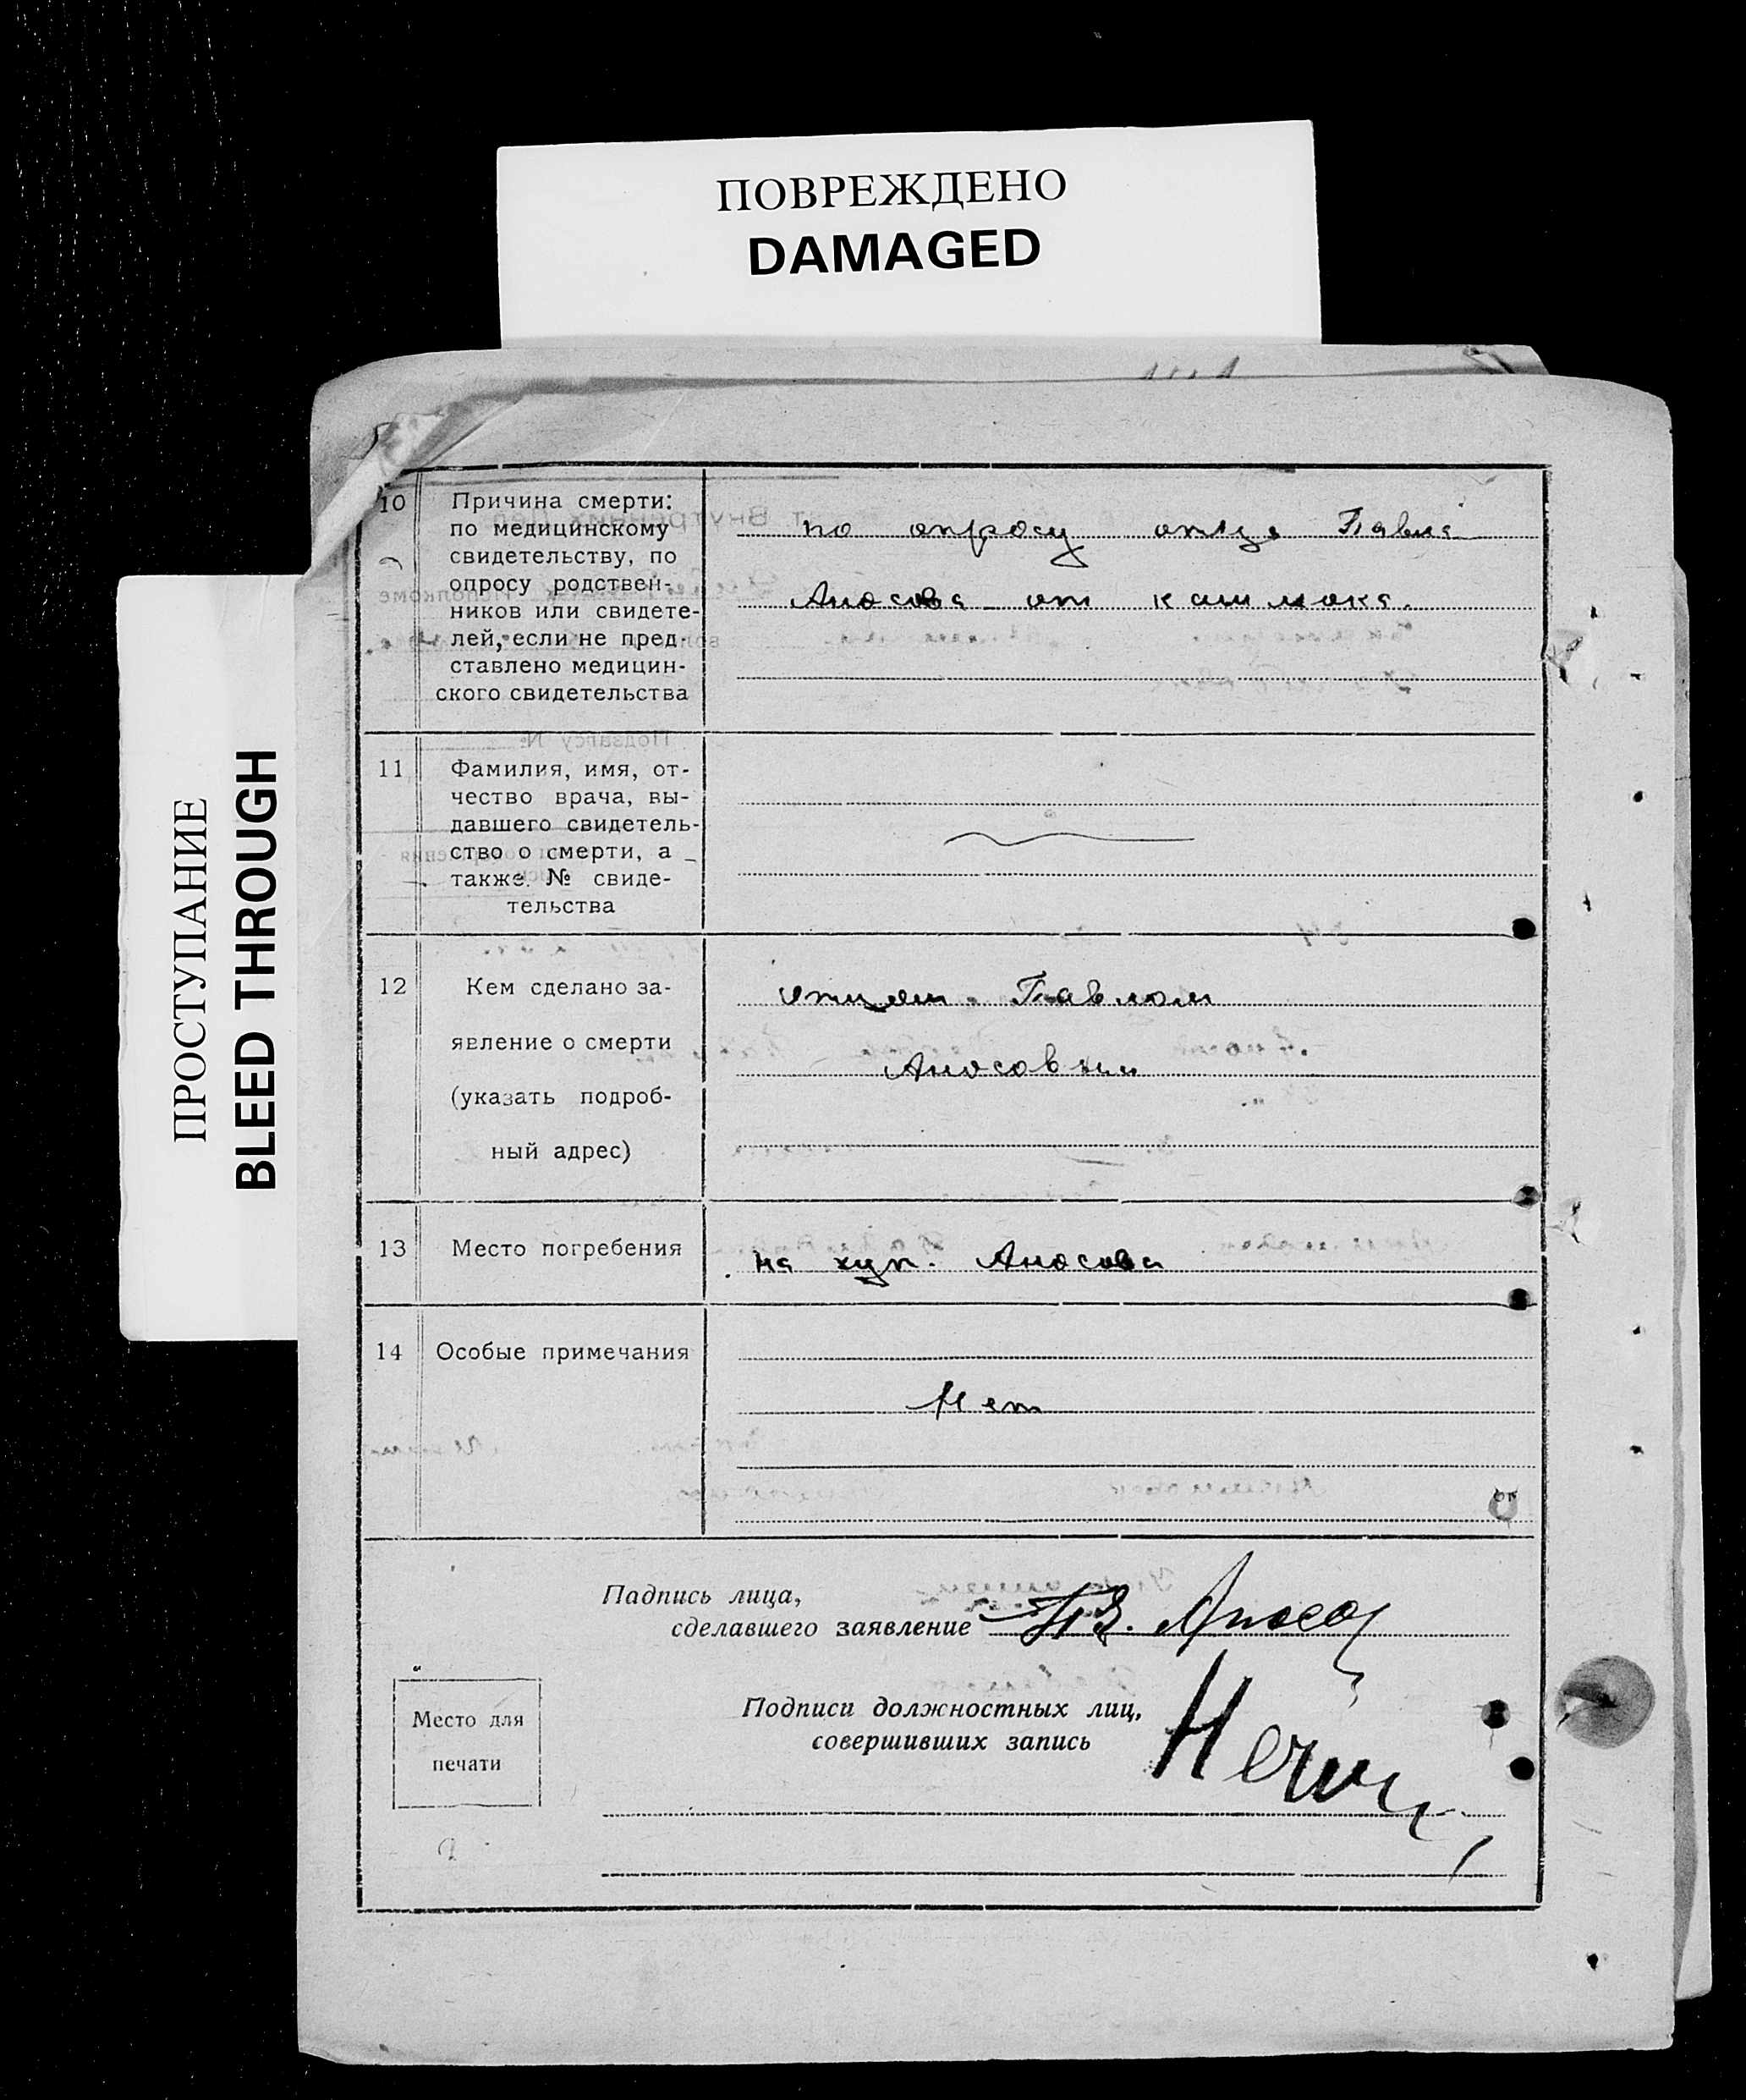 ПОВРЕЖДЕНО
DAMAGED
ПРОСТУПАНИЕ
BLEED THROUGH
10
Причина смерти:
по медицинскому
свидетельству, по
опросу родствен-
ников или свидете-
лей, если не пред-
ставлено медицин-
ского свидетельства
по опросу отца Павла
Аносова от
11
Фамилия, имя, от-
чество врача, вы-
давшего свидетель-
ство о смерти, а
также № свиде-
тельства
12
Кем сделано за-
явление о смерти
(указать подроб-
ный адрес)
отцом Павлом
Аносовым
13
Место погребения
на хут. Аносова
14
Особые примечания
Нет
Падпись лица,
сделавшего заявление
Аносо
Подписи должностных лиц,
совершивших запись
Место для
печати